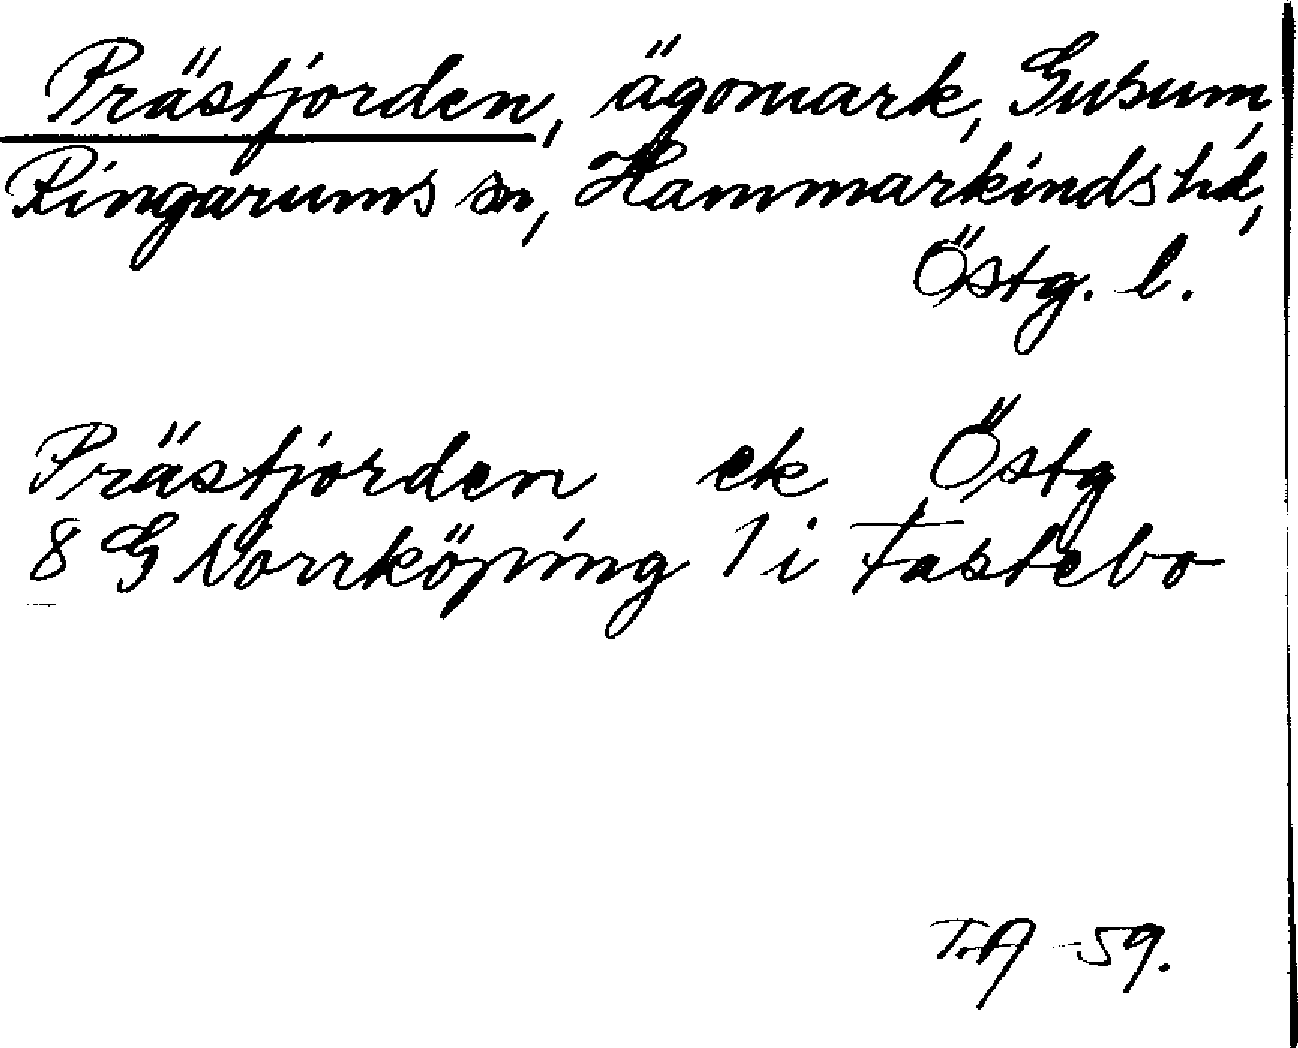 Prästjorden, ägomark, Gusum,
Ringarums sn, Hammarkinds hd,
Östg. l.
Prästjorden ek Östg
8 G Norrköping 1 i Fastebo
T.A -59.